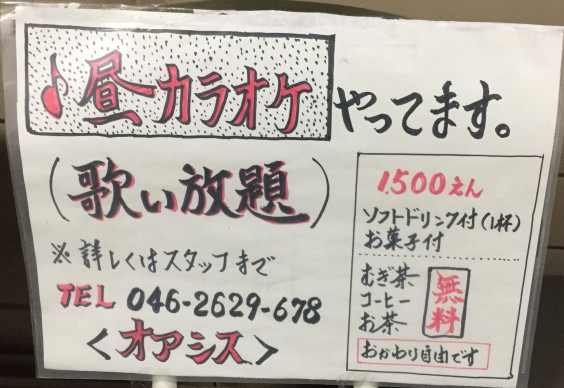 ♪昼カラオケ やってます。
(歌い放題)
※詳しくはスタッフまで
TEL 046-2629-678
<オアシス>
1,500えん
ソフトドリンク付(1杯)
お菓子付
むぎ茶
コーヒー
お茶
無料
おかわり自由です